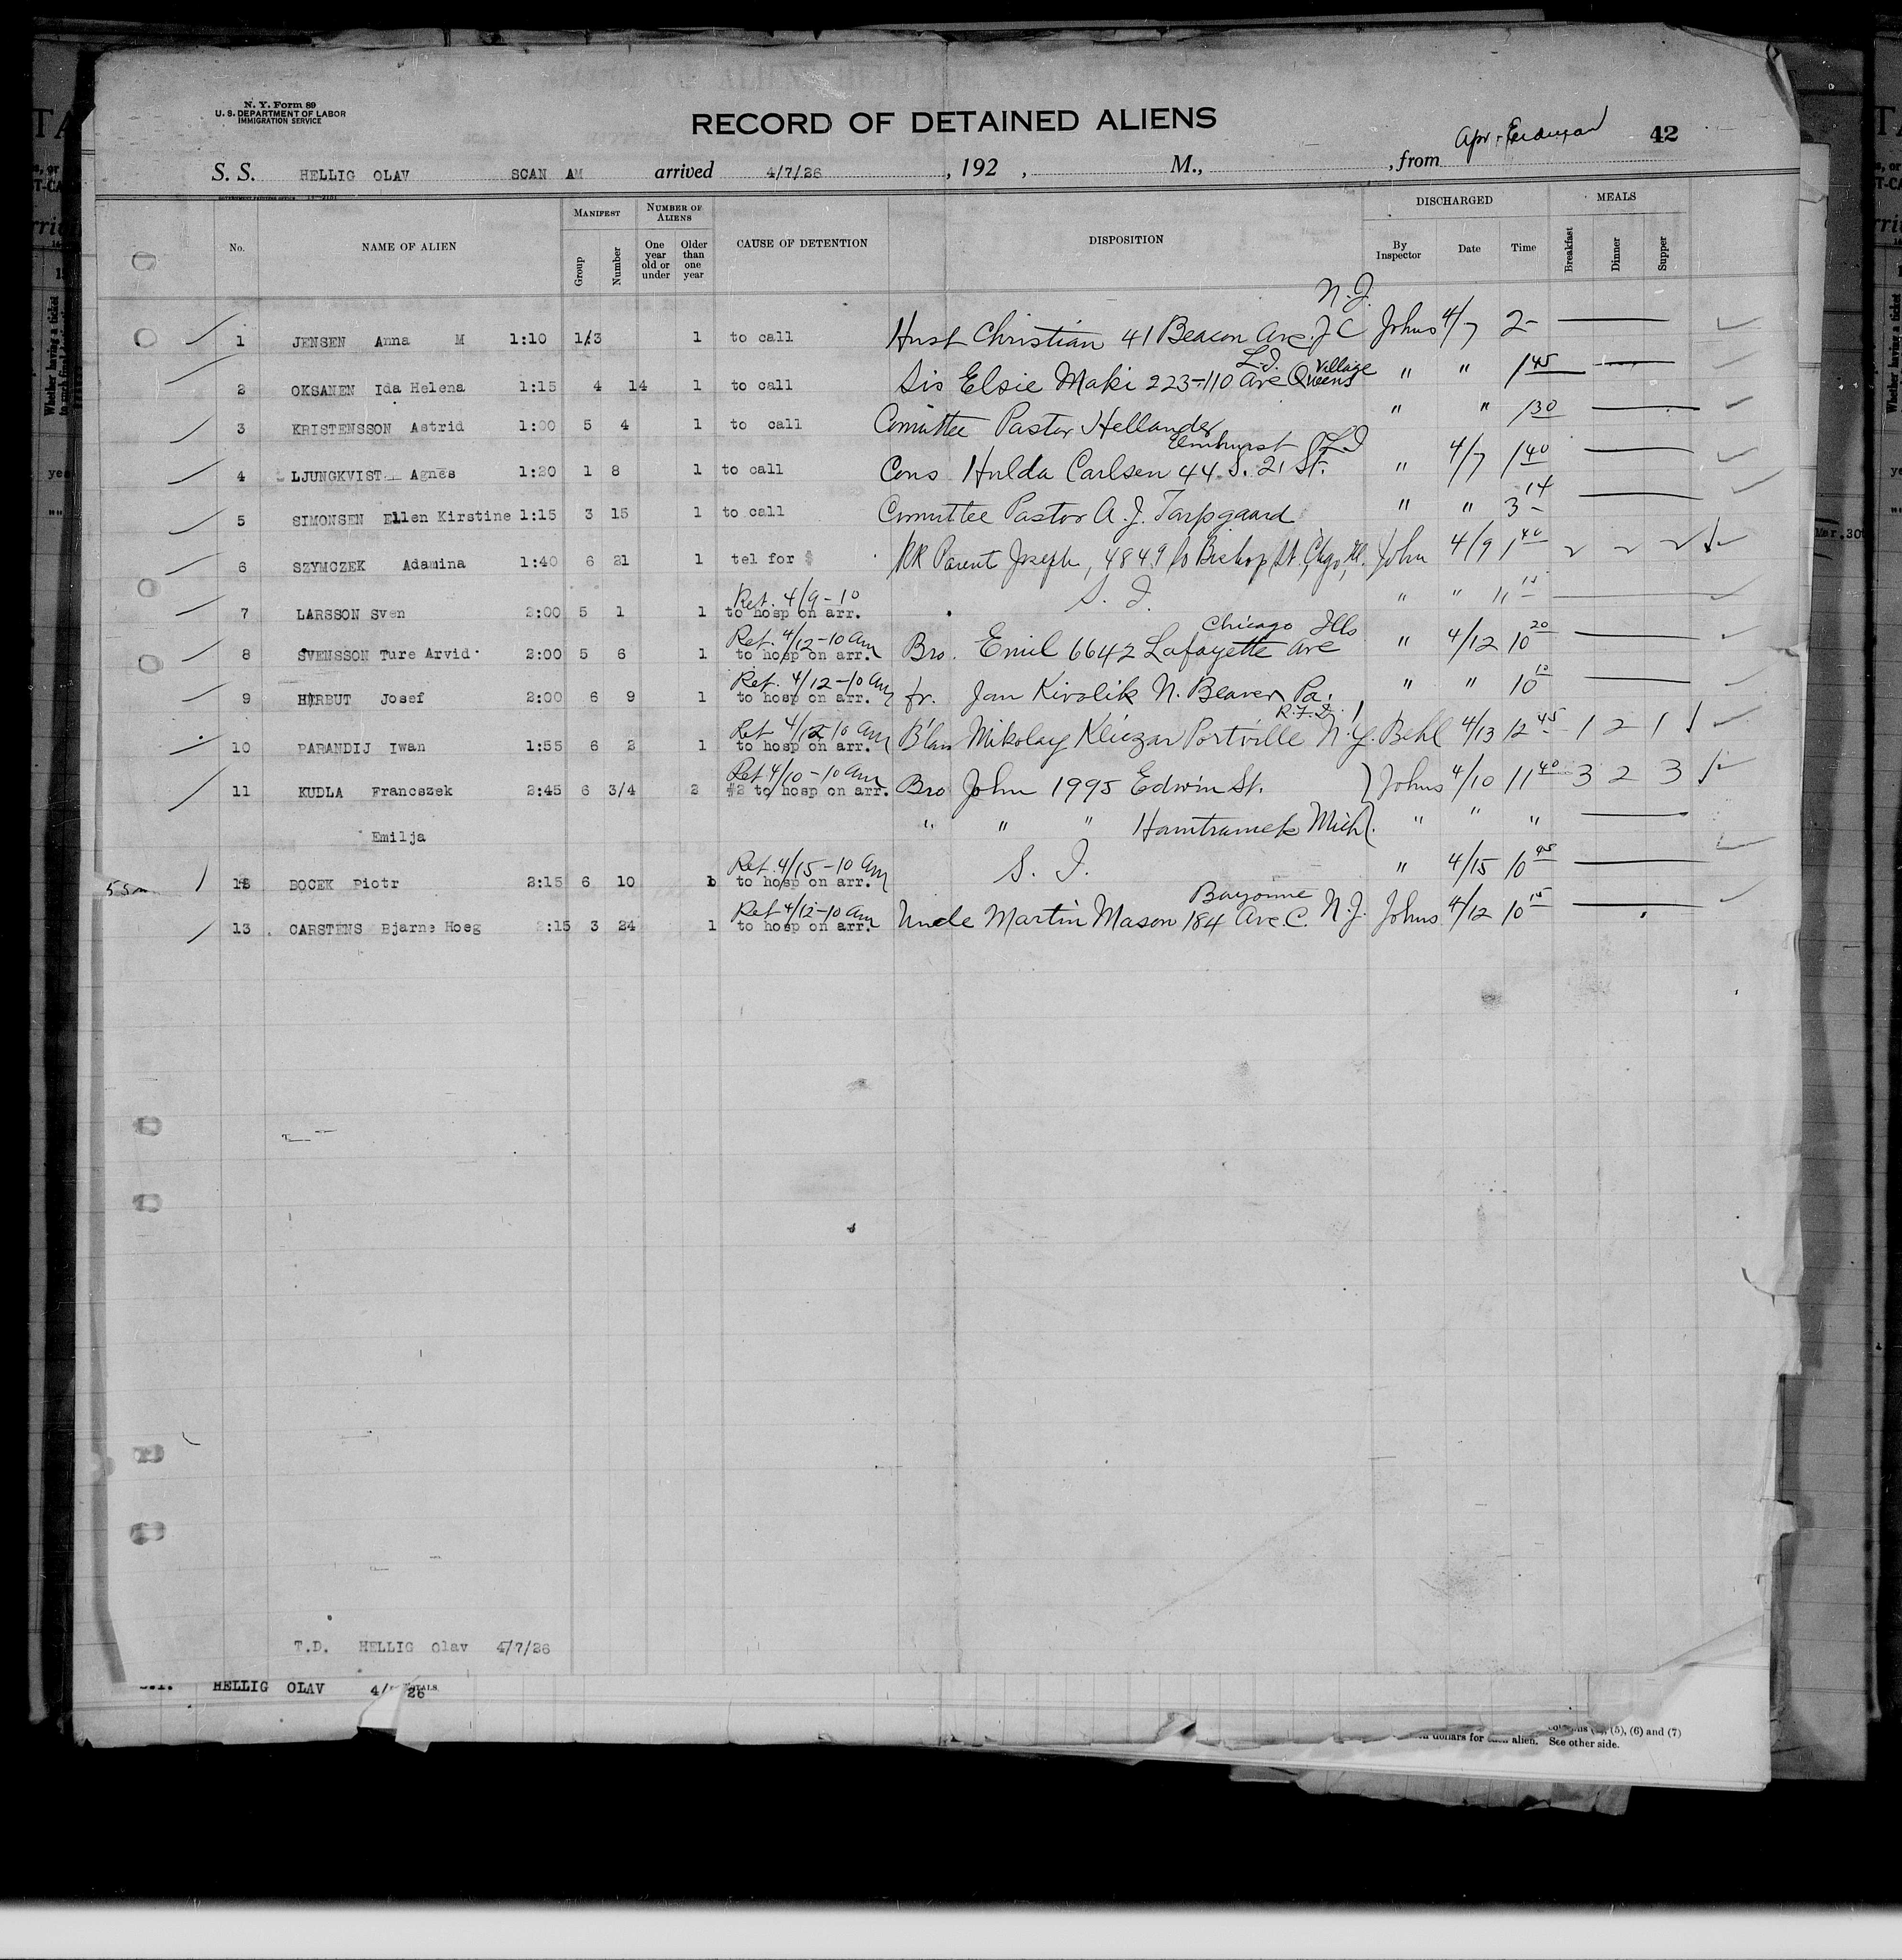 N. Y. Form 89
U. S. DEPARTMENT OF LABOR
IMMIGRATION SERVICE
RECORD OF DETAINED ALIENS
42
S. S. HELLIG OLAV SCAN AM arrived 4/7/26, 192 , M., , from
No. NAME OF ALIEN MANIFEST Group Number NUMBER OF ALIENS One year old or under Older than one year CAUSE OF DETENTION DISPOSITION DISCHARGED By Inspector Date Time MEALS Breakfast Dinner Supper
N.J.
1 JENSEN Anna M 1:10 1/3 1 to call Husb Christian 41 Beacon Ave. J C Johns 4/7 2-
L.I. Village
2 OKSANEN Ida Helena 1:15 4 14 1 to call Sis Elsie Maki 223-110 Ave Queens " " 1 45
3 KRISTENSSON Astrid 1:00 5 4 1 to call Comittee Pastor Hellander " " 1 30
Elmhurst L I
4 LJUNGKVIST Agnes 1:20 1 8 1 to call Cons Hulda Carlsen 44 S. 21 St. " 4/7 1 40
5 SIMONSEN Ellen Kirstine 1:15 3 15 1 to call Comittee Pastor A. J. Tarpgaard " " 3 14
6 SZYMCZEK Adamina 1:40 6 21 1 tel for $ RR Parent Joseph, 4849 So Bishop St. Chgo, Ill. John 4/9 1 40
Ret. 4/9-10
7 LARSSON Sven 2:00 5 1 1 to hosp on arr. S. I. " " 11
Ret. 4/12-10 am Chicago Ills
8 SVENSSON Ture Arvid 2:00 5 6 1 to hosp on arr. Bro. Emil 6642 Lafayette Ave " 4/12 10 20
Ret. 4/12-10 am
9 HERBUT Josef 2:00 6 9 1 to hosp on arr. fr. Jan Kivolik N. Beaver Pa. " " 10
Ret 4/12 10 am
10 PARANDIJ Iwan 1:55 6 2 1 to hosp on arr. Mikolay Portville N.Y. Behl 4/13 12 45 1 2 1
Ret 4/10-10 am
11 KUDLA Francszek 2:45 6 3/4 2 #2 to hosp on arr. Bro John 1995 Edwin St. Johns 4/10 11 40 3 2 3
Emilja " " " Hamtramck Mich. " " "
Ret. 4/15-10 am
12 BOCEK Piotr 2:15 6 10 1 to hosp on arr. S. I. " 4/15 10 45
Ret 4/12-10 am Bayonne
13 CARSTENS Bjarne Hoeg 2:15 3 24 1 to hosp on arr. Uncle Martin Mason 184 Ave. C. N.J. Johns 4/12 10 15
T.D. HELLIG Olav 4/7/26
HELLIG OLAV
(5), (6) and (7)
dollars for each alien. See other side.